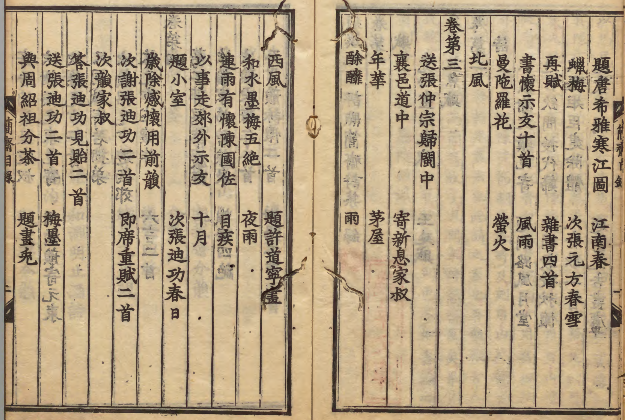 題唐希雅寒江圖 江南春
蠟梅 次張元方春雪
再賦 雜書四首
書懷示友十首 風雨
曼陁羅花 螢火
北風
卷第三
送張仲宗歸閩中
襄邑道中 寄新息家叔
年華 茅屋
酴醾 雨
西風 題許道寧畫
和水墨梅五絶 夜雨
連雨有懷陳國佐 目疾
以事走郊外示友 十月
題小室 次張迪功春日
歲除感懷用前韻
次謝張迪功二首 即席重賦二首
次韻家叔
答張迪功見貽二首
送張迪功二首 梅墨
與周紹祖分茶 題畫兎
簡齋目錄